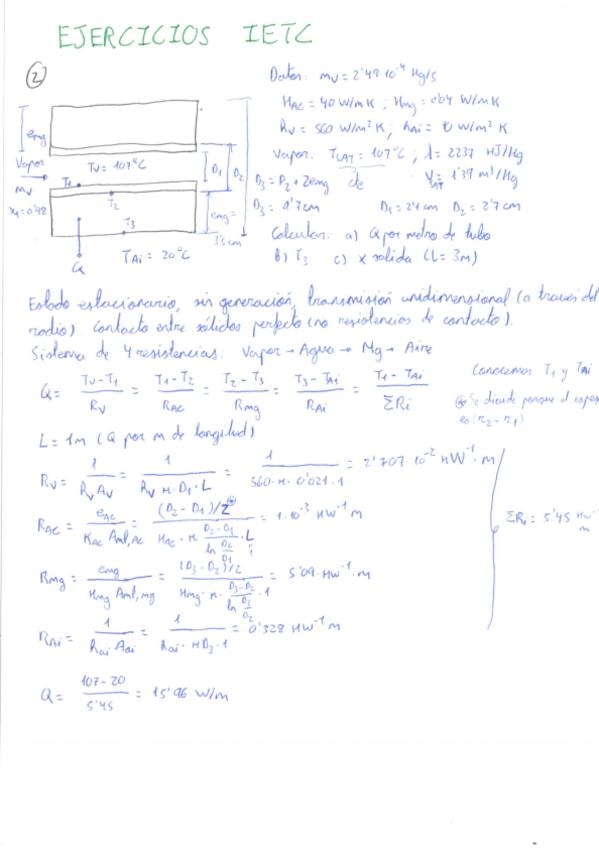 EJERCICIOS IETC
2
Datos: mv = 2'49·10⁻⁴ Kg/s
KAC = 40 W/mK ; Kmg = 0'04 W/mK
hv = 560 W/m²K ; hAi = 10 W/m²K
Vapor: TSAT = 107°C ; λ = 2237 KJ/Kg
VSAT = 1'39 m³/Kg
D3 = D2 + 2emg
D3: 9'7cm D1 = 2'1 cm D2 = 2'7 cm
Calcular: a) Q por metro de tubo
b) T3 c) x salida (L = 3m)
emg
Vapor
mv
x1 = 0'98
Tv = 107°C
T1
T2
T3
D1
D2
emg =
3'5 cm
Q
TAi = 20°C
Estado estacionario, sin generación, transmisión unidimensional (a través del
radio) Contacto entre sólidos perfecto (no resistencias de contacto).
Sistema de 4 resistencias: Vapor → Agua → Mg → Aire
Q = (Tv - T1)/Rv = (T1 - T2)/RAC = (T2 - T3)/Rmg = (T3 - TAi)/RAi = (T1 - TAi)/ΣRi
Conocemos T1 y TAi
Se divide porque el espes
es (r2 - r1)
L = 1m (Q por m de longitud)
Rv = 1/(hv Av) = 1/(hv π·D1·L) = 1/(560·π·0'021·1) = 2'707·10⁻² KW⁻¹·m
RAC = eAC/(KAC Aml,AC) = ((D2 - D1)/2)/(KAC·π (D2-D1)/(ln D2/D1)·L) = 1·10⁻³ KW⁻¹ m
Rmg = emg/(Kmg Aml,mg) = ((D3 - D2)/2)/(Kmg·π·(D3-D2)/(ln D3/D2)·1) = 5'09·KW⁻¹·m
RAi = 1/(hai·Aai) = 1/(hai·πD3·1) = 0'328 KW⁻¹ m
ΣRi = 5'45 KW⁻¹ m
Q = (107-20)/5'45 = 15'96 W/m